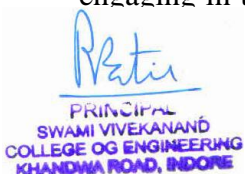 engaging in
PRINCIPAL
SWAMI VIVEKANAND
COLLEGE OG ENGINEERING
KHANDWA ROAD, INDORE